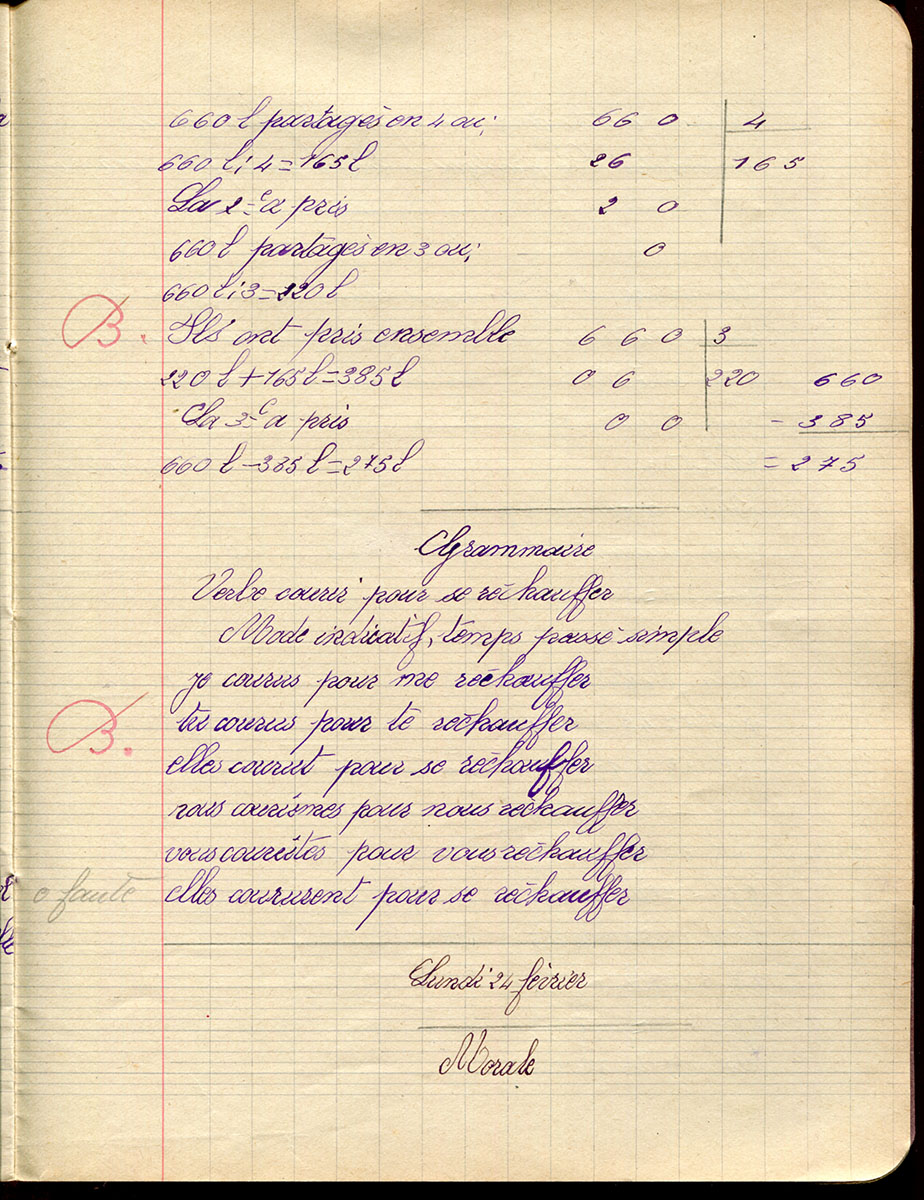 660 l partagés en 4 ou; 66 0 4
660 l : 4 = 165 l 26 165
La 2e a pris 2 0
660 l partagés en 3 ou; 0
660 l : 3 = 220 l
B. Ils ont pris ensemble 6 6 0 3
220 l + 165 l = 385 l 0 6 220 660
La 3e a pris 0 0 - 385
660 l - 385 l = 275 l = 275
Grammaire
Verbe courir pour se réchauffer
Mode indicatif, temps passé simple
je courus pour me réchauffer
B. tu courus pour te réchauffer
elles courut pour se réchauffer
nous courûmes pour nous réchauffer
vous courûtes pour vous réchauffer
0 faute elles coururent pour se réchauffer
Lundi 24 février
Morale